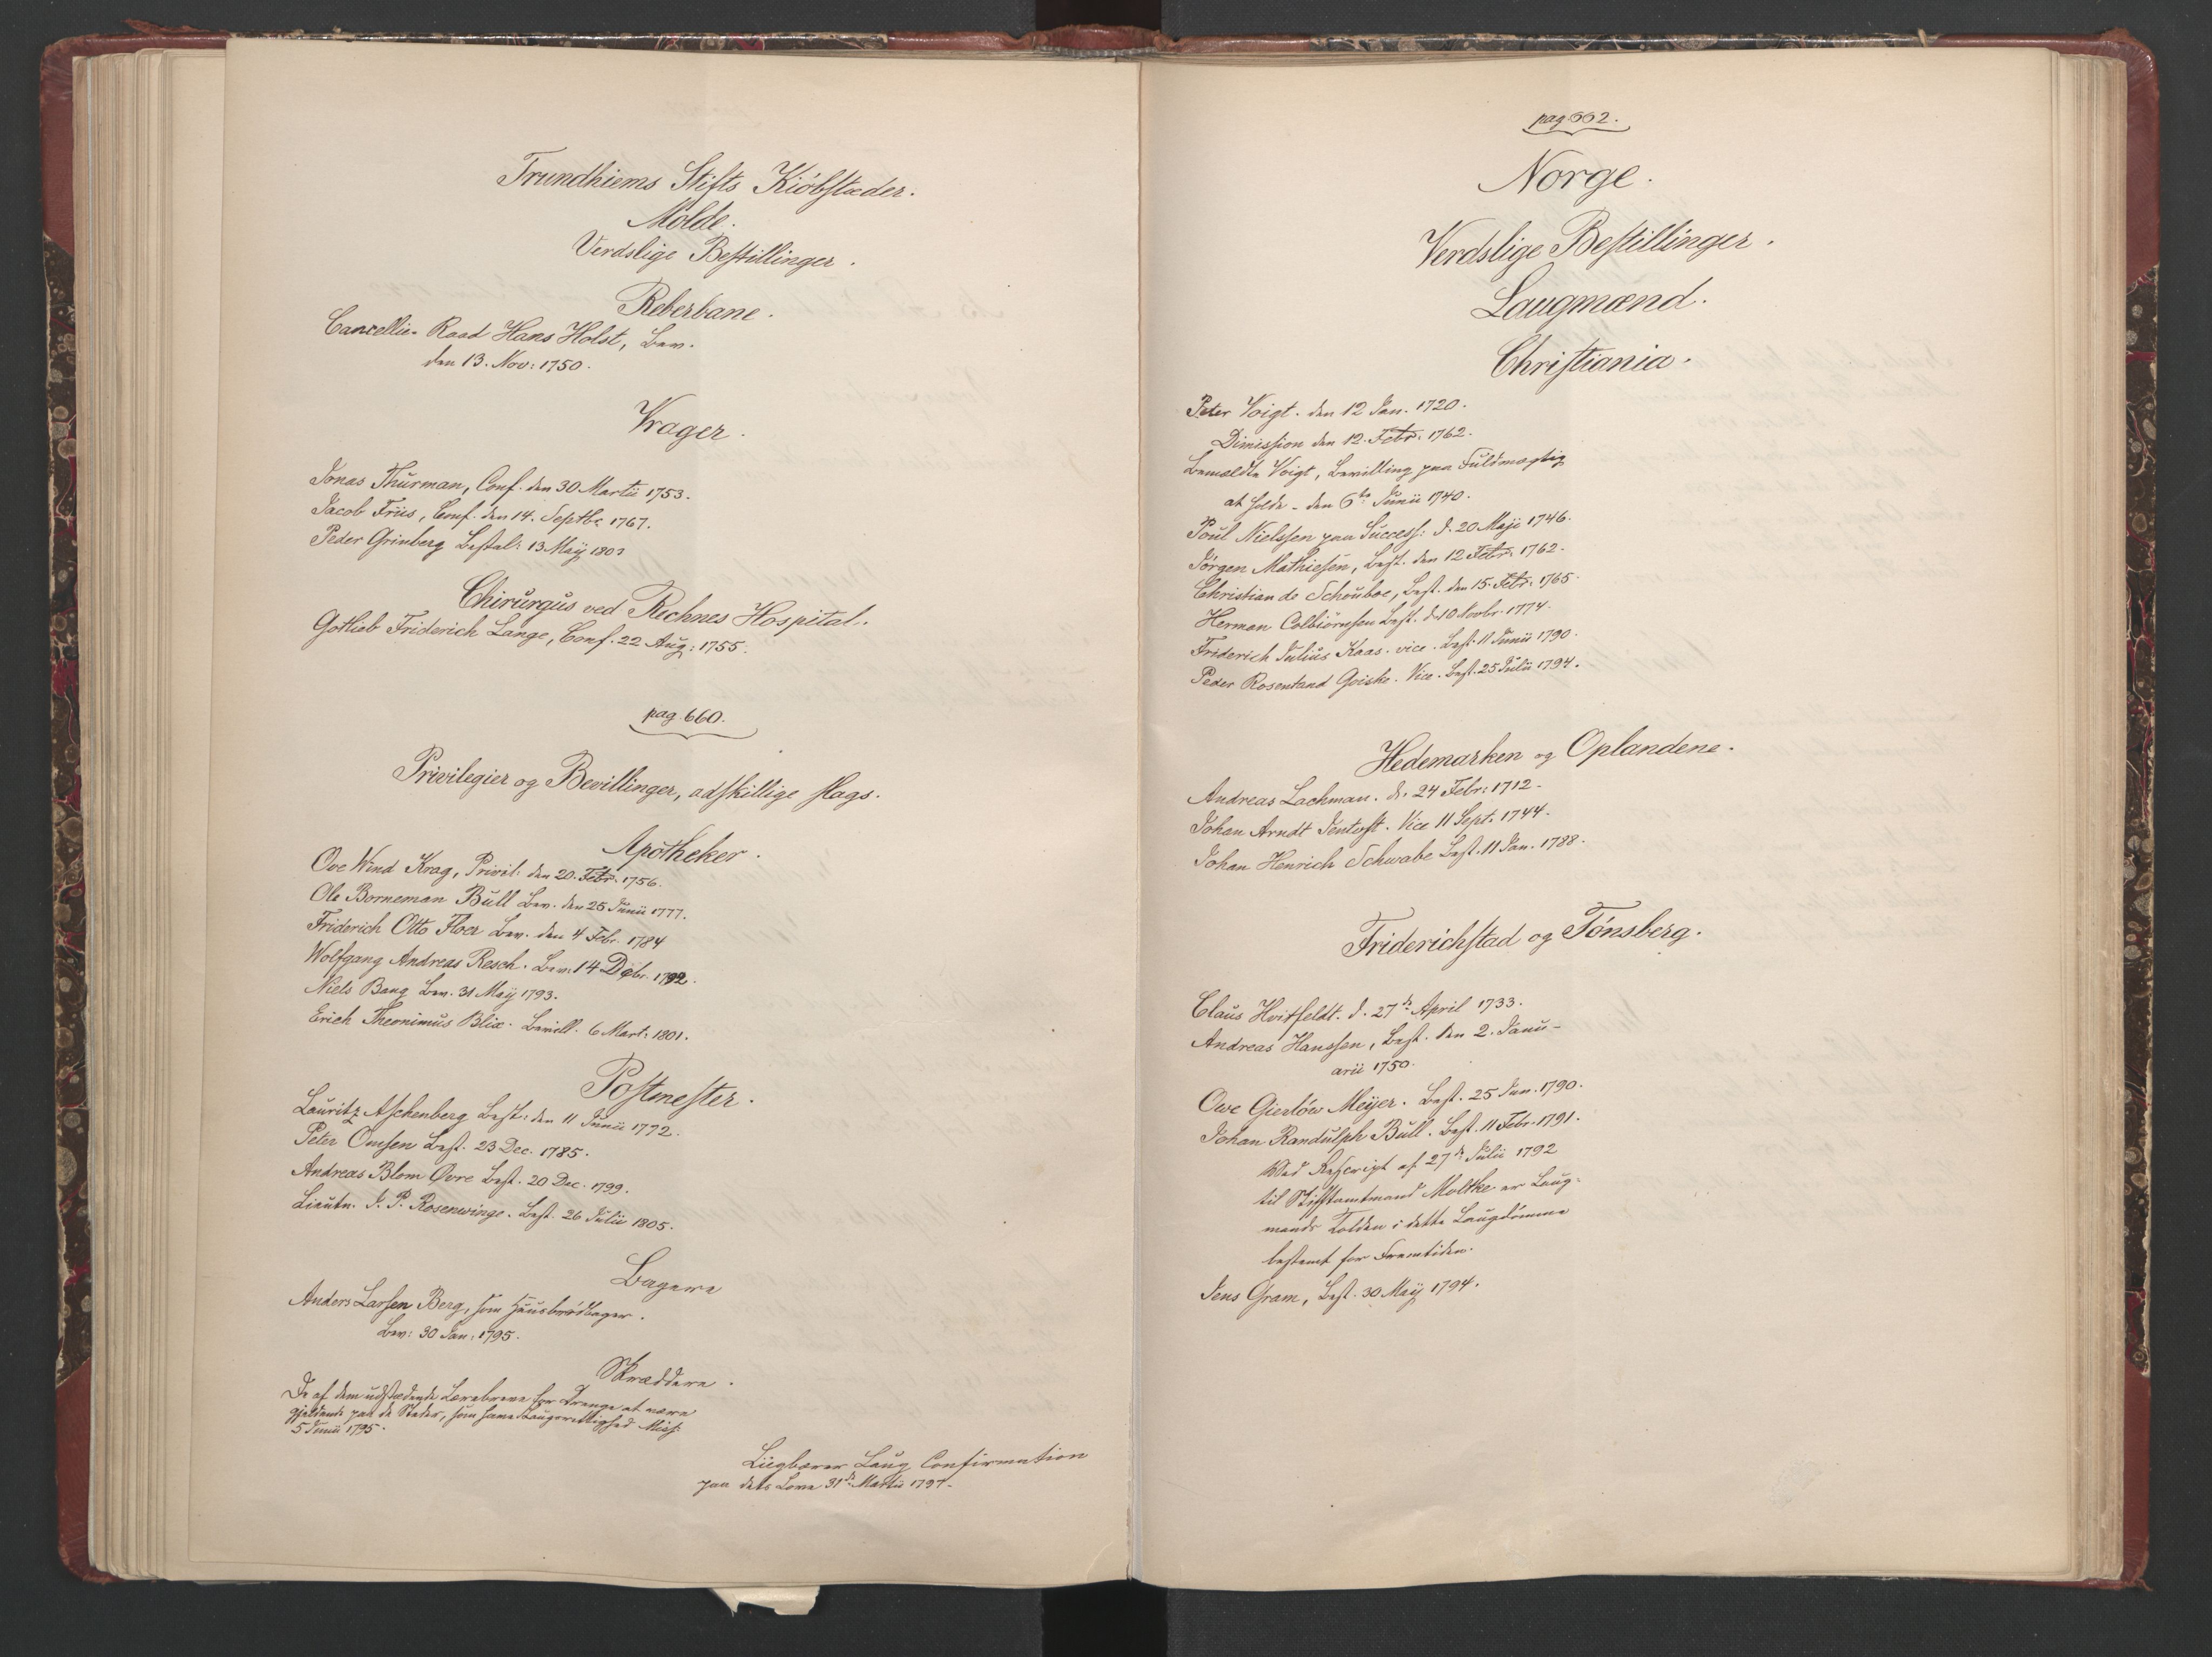 Trundhiems Stifts Kiøbstæder.
Molde.
Verdslige Bestillinger.
Reberbane.
Cancellie-Raad Hans Holst, Bev.
den 13. Nov: 1750.
Vrager.
Jonas Thurman, Conf. den 30 Martii 1753.
Jacob Friis, Conf. den 14. Septbr 1767.
Peder Grinberg Bestal: 13 Maij 1803
Chirurgus ved Rechnes Hospital.
Gotlieb Friderich Lange, Conf. 22 Aug: 1755.
pag. 660.
Privilegier og Bevillinger, adskillige slags.
Apotheker.
Ove Wind Krag, Privil: den 20. Febr. 1756.
Ole Borneman Bull Bev. den 25 Junii 1777.
Friderich Otto Floer Bev. den 4 Febr. 1784
Wolfgang Andreas Resch. Bev: 14 Dcbr. 1792.
Niels Bang Bev. 31 Maij 1793.
Erich Theonimus Blix. Bevill. 6 Mart: 1801.
Postmester.
Lauritz Aschenberg Best: den 11 Junii 1772.
Peter Omsen Best. 23 Dec. 1785.
Andreas Blom Øvre Best. 20 Dec. 1799.
Lieutn. J. P. Rosenwinge. Best. 26 Julii 1805.
Bagere
Anders Larsen Berg, som Huusbrødbager.
Bev: 30 Jan: 1795.
Skræddere.
De af dem udstædende Lærebreve for Drenge at være
gjeldende paa de Steder, som have Laugsrettighed Miss:
5 Junii 1795.
Liigbærer Laug Confirmation
paa dets Love 31te Martii 1797.
pag. 662.
Norge.
Verdslige Bestillinger.
Laugmænd.
Christiania.
Peter Voigt. den 12 Jan. 1720.
Dimission den 12. Febr. 1762.
Bemældte Voigt, Bevilling paa Fuldmægtig
at holde - den 6te Junii 1740.
Poul Nielssen paa Success: d. 20 Maji 1746.
Jørgen Mathiesen, Best. den 12 Febr. 1762.
Christian de Schouboe, Best. den 15. Febr. 1765.
Herman Colbiørnsen Best. d. 10 Novbr. 1774.
Friderich Julius Kaas. vice. Best. 11 Junii 1790.
Peder Rosentand Goiske. Vice. Best. 25 Julii 1794.
Hedemarken og Oplandene.
Andreas Lachman. d. 24 Febr: 1712.
Johan Arndt Jentoft. Vice 11 Sept: 1744.
Johan Henrich Schwabe Best. 11 Jan. 1788.
Friderichstad og Tønsberg.
Claus Hvitfeldt. d. 27de April 1733.
Andreas Hanssen, Best. den 2. Janu-
arii 1750.
Owe Gierløw Meyer. Best. 25 Jun. 1790.
Johan Randulph Bull. Best. 11 Febr. 1791.
Ved Rescript af 27de Julii 1792
til Stiftamtmand Moltke er Laug-
mands Tolden i dette Laugdømme
bestemt for Fremtiden.
Jens Gram, Best. 30 Maij 1794.